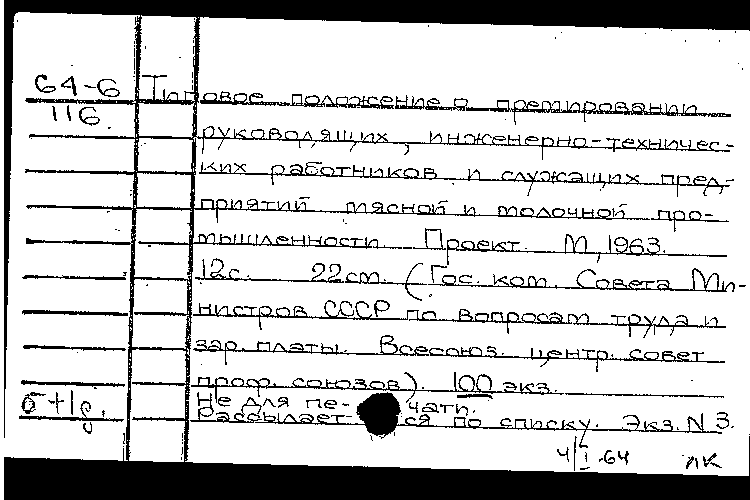 64-6 Типовое положение о премировании
116. руководящих, инженерно-техничес-
ких работников и служащих пред-
приятий мясной и молочной про-
мышленности. Проект. М, 1963.
12с. 22см. (Гос. ком. Совета Ми-
нистров СССР по вопросам труда и
зар. платы. Всесоюз. центр. совет
проф. союзов). 100 экз.
Не для печати.
Рассылается по списку. Экз. N 3.
4/I-64 лк